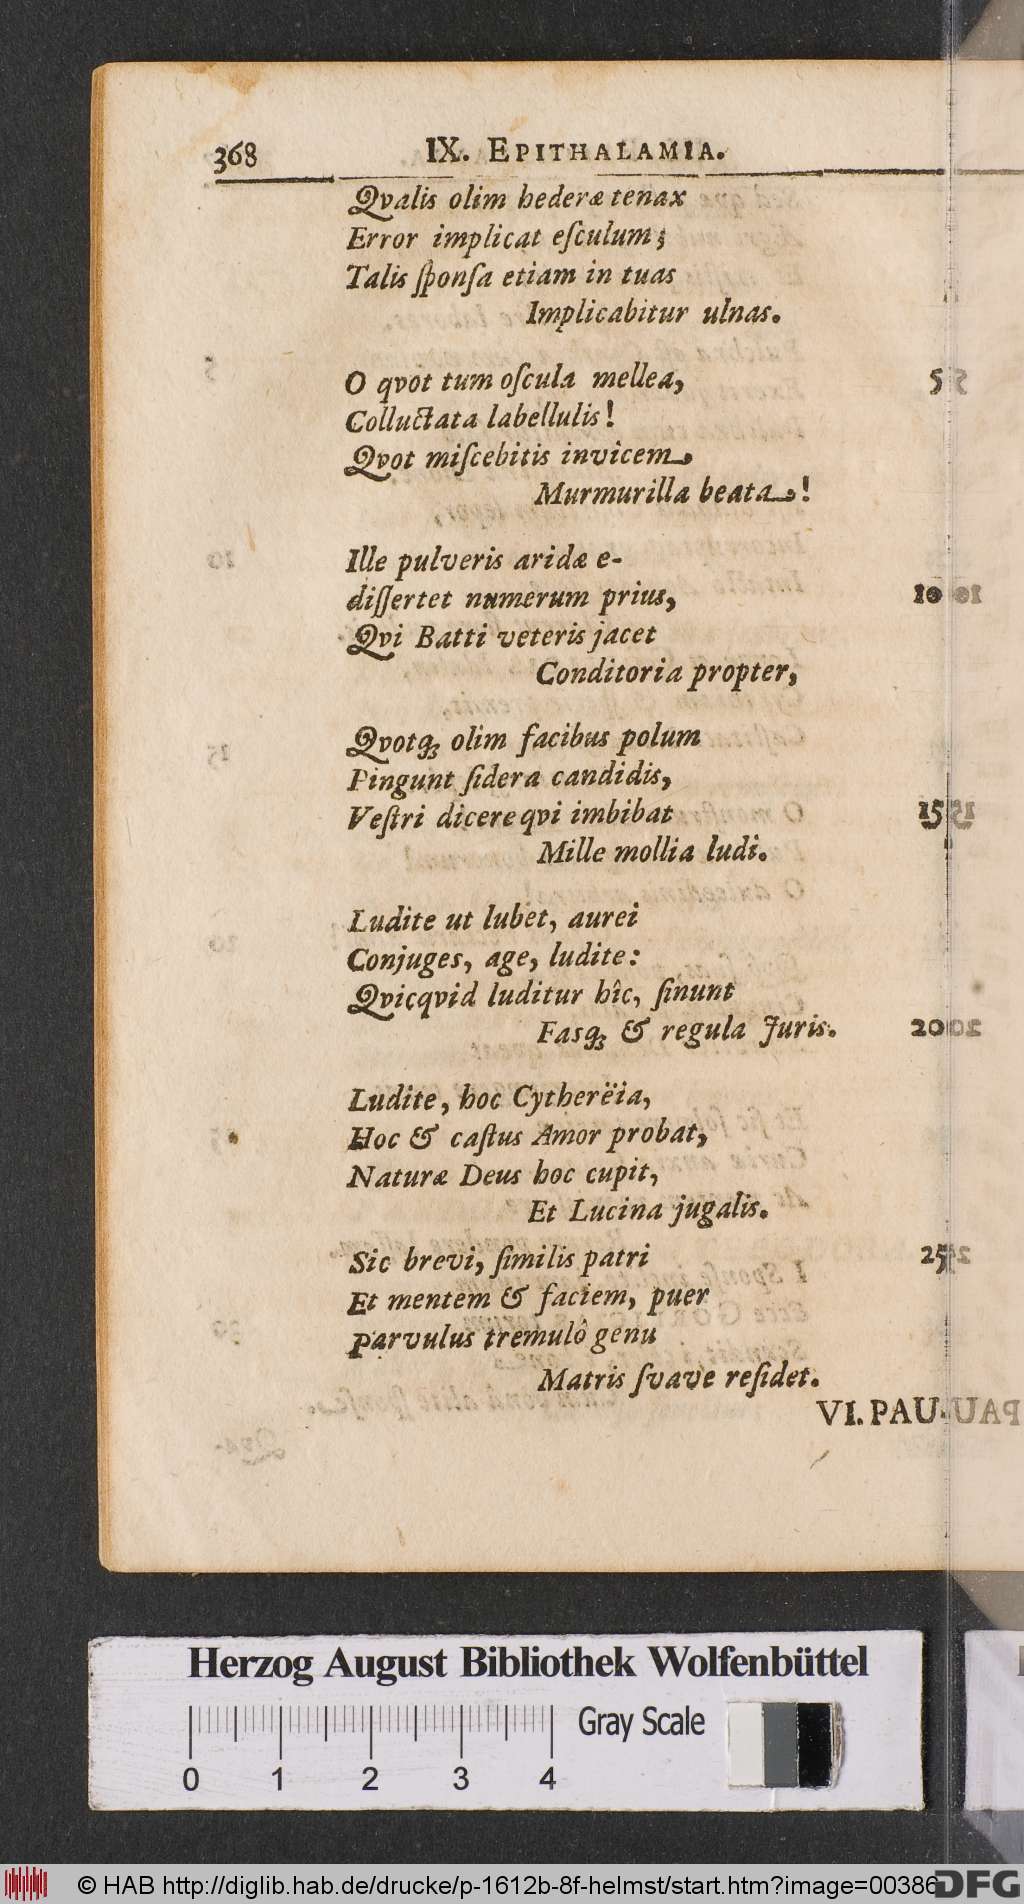 368 IX. EPITHALAMIA.
Qvalis olim hederæ tenax
Error implicat eſculum;
Talis ſponſa etiam in tuas
Implicabitur ulnas.
O qvot tum oſcula mellea, 5
Colluctata labellulis!
Qvot miſcebitis invicem
Murmurilla beata!
Ille pulveris aridæ e-
diſſertet numerum prius, 10
Qvi Batti veteris jacet
Conditoria propter,
Qvotq́; olim facibus polum
Pingunt ſidera candidis,
Veſtri dicere qvi imbibat 15
Mille mollia ludi.
Ludite ut lubet, aurei
Conjuges, age, ludite:
Qvicqvid luditur hîc, ſinunt
Fasq́; & regula Juris. 20
Ludite, hoc Cytherëia,
Hoc & caſtus Amor probat,
Naturæ Deus hoc cupit,
Et Lucina jugalis.
Sic brevi, ſimilis patri 25
Et mentem & faciem, puer
Parvulus tremulô genu
Matris ſvave reſidet.
VI. PAU-
Herzog August Bibliothek Wolfenbüttel
Gray Scale
0 1 2 3 4
© HAB http://diglib.hab.de/drucke/p-1612b-8f-helmst/start.htm?image=00386
DFG